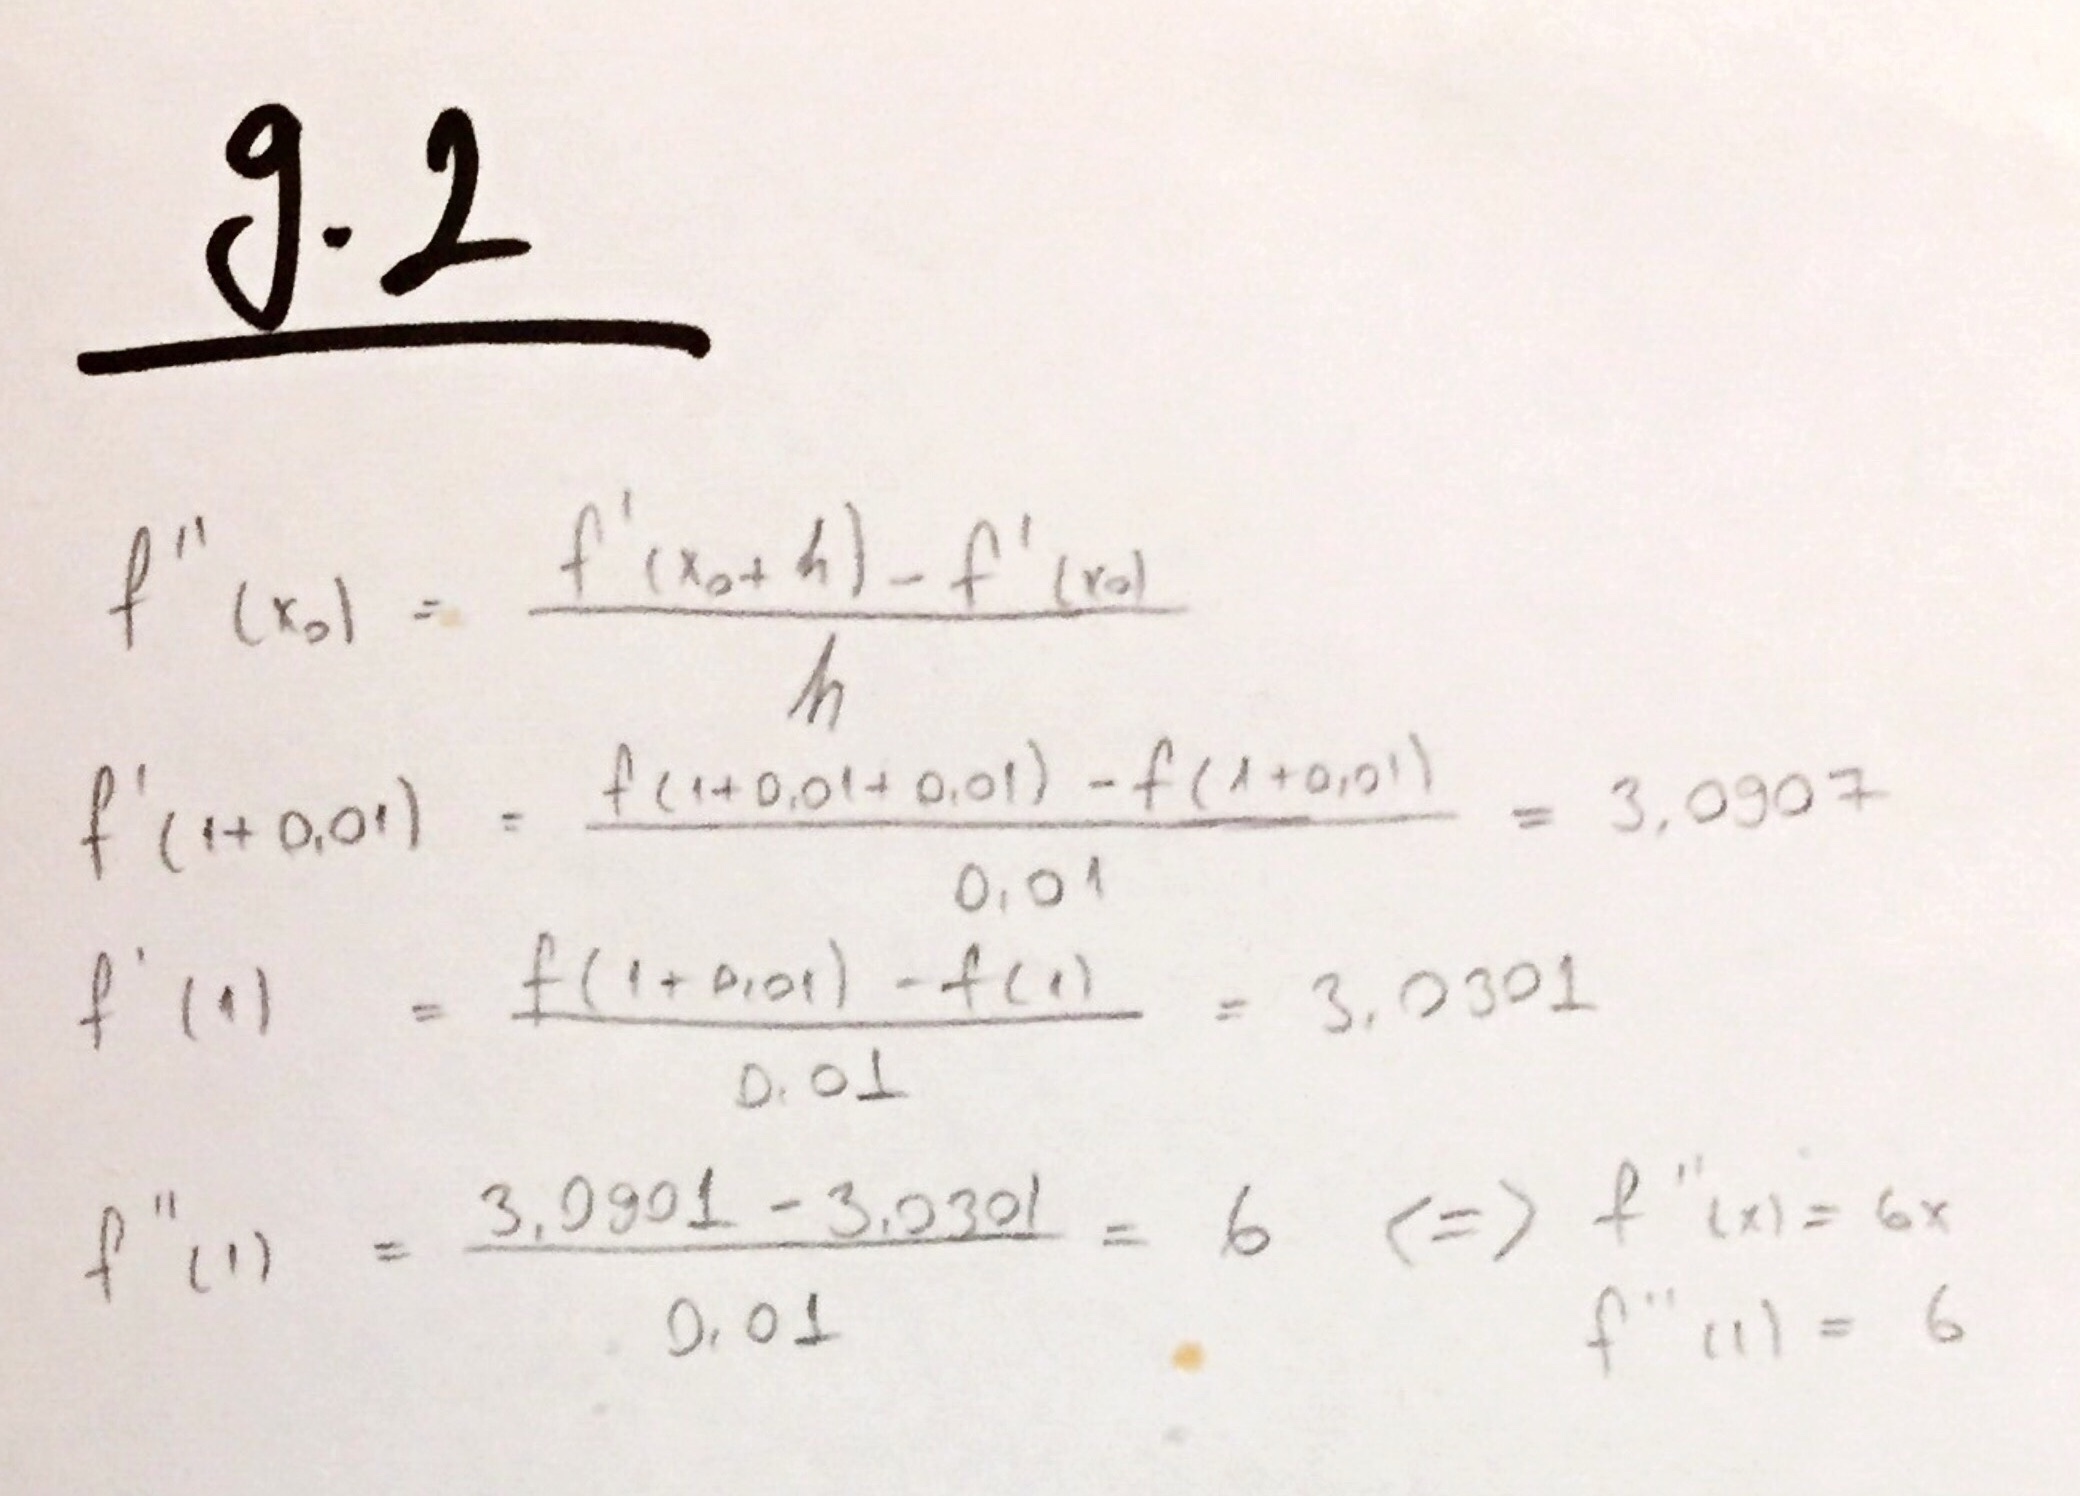 g.2
f''(x₀) = f'(x₀+h) - f'(x₀) / h
f'(1+0,01) = f(1+0,01+0,01) - f(1+0,01) / 0,01 = 3,0907
f'(1) = f(1+0,01) - f(1) / 0.01 = 3,0301
f''(1) = 3,0901 - 3,0301 / 0,01 = 6 <=> f''(x) = 6x
f''(1) = 6